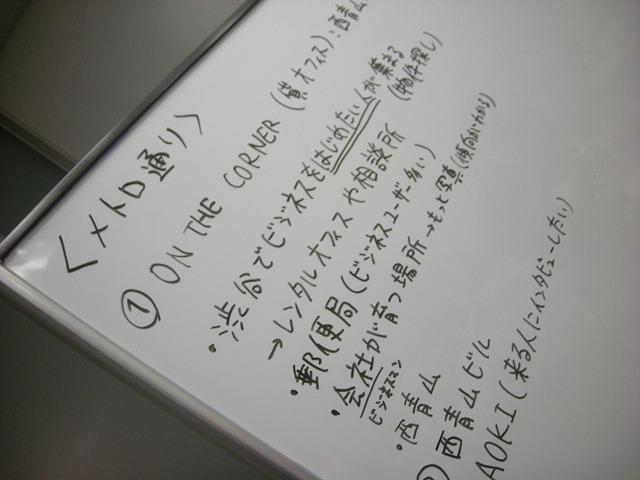 <メトロ通り>
① ON THE CORNER (貸オフィス):西青山
・渋谷でビジネスをはじめたい人が集まる
(物件探し)
→レンタルオフィスや相談所
・郵便局(ビジネスユーザー多い)
・会社が育つ場所→もっと写真(傾向がわかる)
ビジネスマン
・西青山
② 西青山ビル
AOKI(来る人にインタビューしたい)